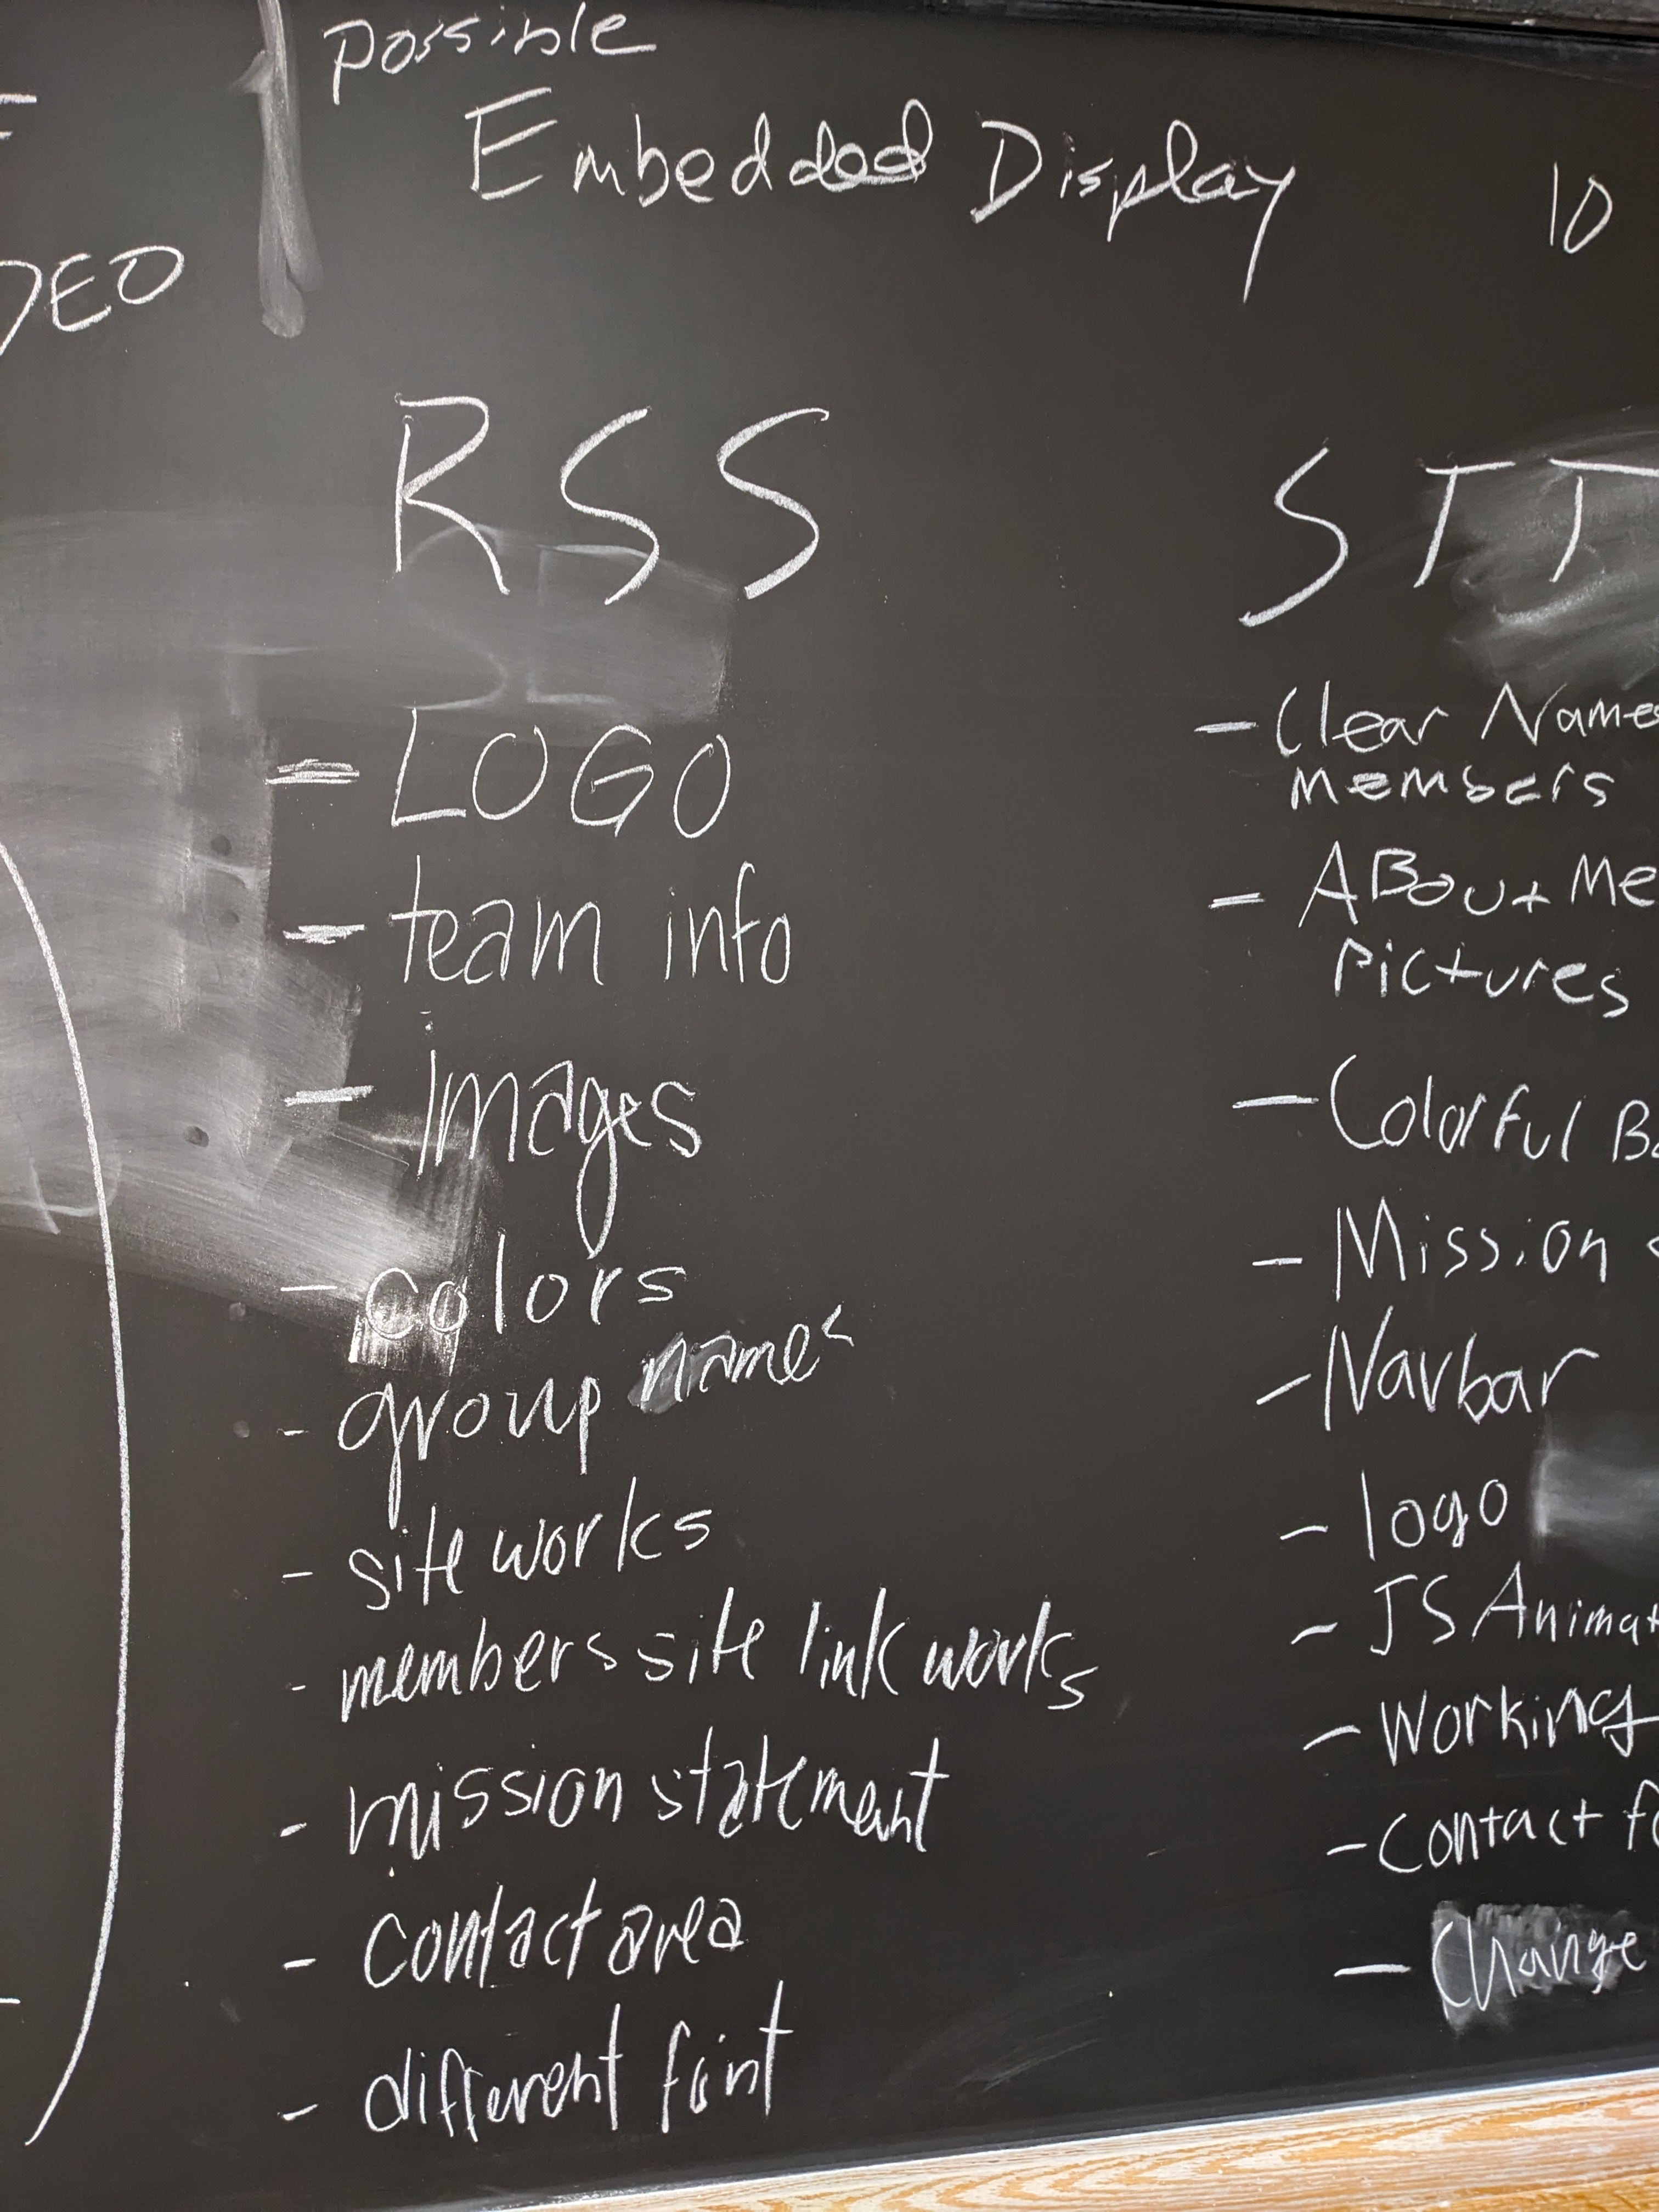 possible
Embedded Display 10
DEO
RSS
- LOGO
- team info
- images
- colors
- group names
- site works
- members site link works
- mission statement
- contact area
- different font
STT
- Clear Names
members
- ABout Me
Pictures
- Colorful
- Mission
- Navbar
- logo
- JS Animat
- Working
- Contact
- Change